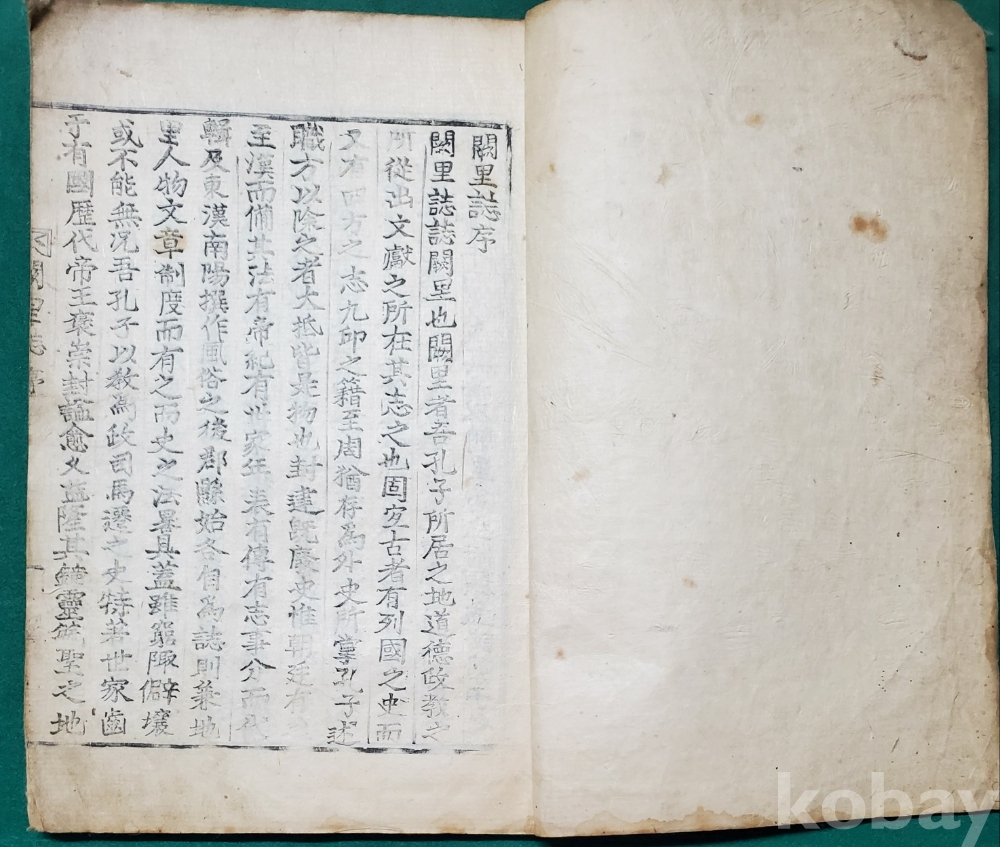 闕里誌序
闕里誌誌闕里也闕里者吾孔子所居之地道德政教之
所從出文獻之所在其志之也固宜古者有列國之史而
又有四方之志九丘之籍至周猶存爲外史所掌孔子述
職方以除之者大抵皆是物也封建旣廢史惟朝廷有
至漢而備其法有帝紀有世家年表有傳有志事分而代
輯及東漢南陽撰作風俗之後郡縣始各自爲誌則兼地
里人物文章制度而有之而史之法畧具蓋雖窮陬僻壤
或不能無况吾孔子以教爲政司馬遷之史特著世家齒
于有國歷代帝王褒崇封謚愈久益隆其鍾靈毓聖之地
闕里志序
kobay